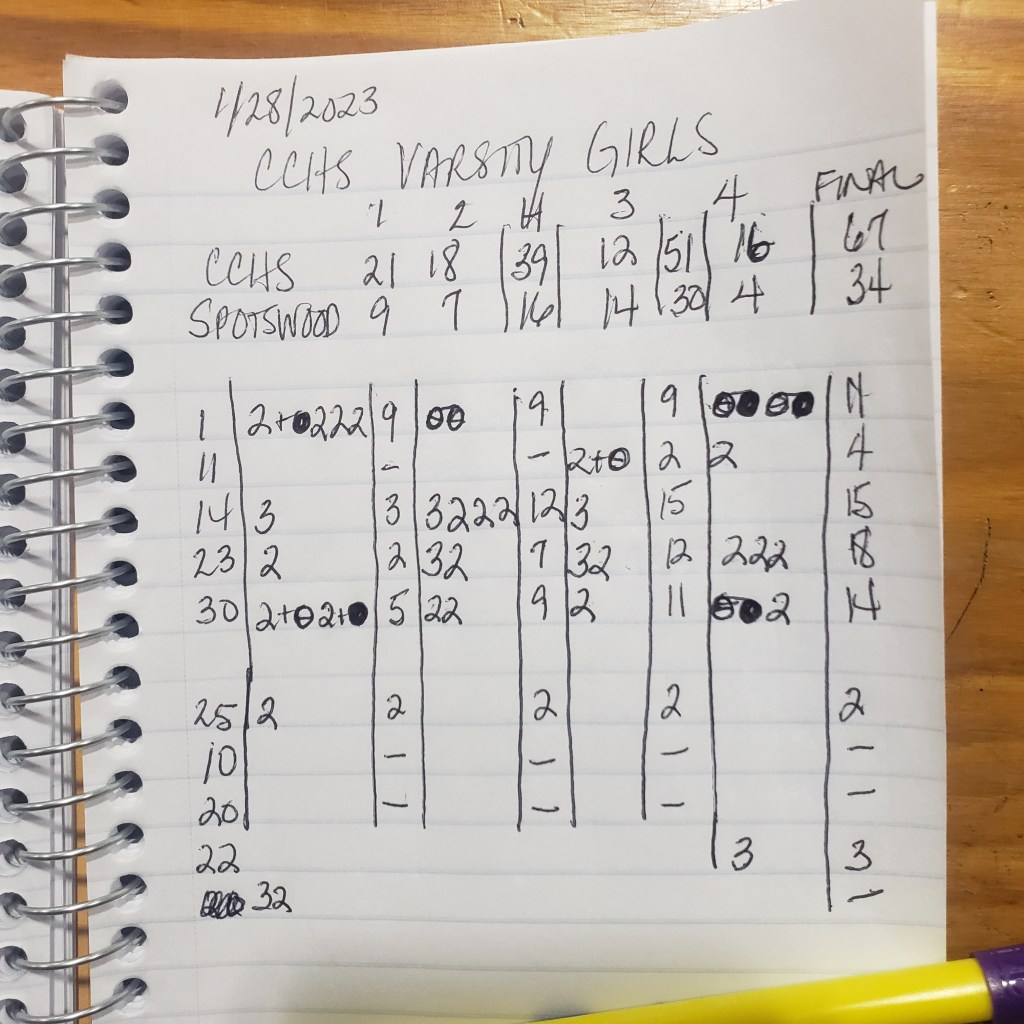 1/28/2023
CCHS VARSITY GIRLS
1 2 H 3 4 FINAL
CCHS 21 18 39 12 51 16 67
SPOTSWOOD 9 7 16 14 30 4 34
1 2+●222 9 ⊖⊖ 9 9 ⊖●⊖● 11
11 - - 2+⊖ 2 2 4
14 3 3 3222 12 3 15 15
23 2 2 32 7 32 12 222 18
30 2+⊖2+● 5 22 9 2 11 ⊖●2 14
25 2 2 2 2 2
10 - - - -
20 - - - -
22 3 3
32 -